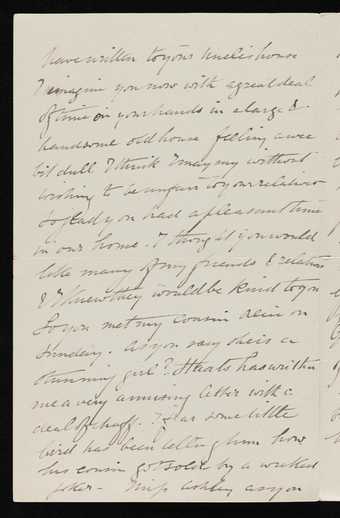 have written to your Uncle's house
I imagine you now with a great deal
of time on your hands in a large &
handsome old house feeling a wee
bit dull I think I may say without
wishing to be unfair to your relatives
So glad you had a pleasant time
in our home. I thought you would
like many of my friends & relations
& I knew they would be kind to you
So you met my cousin on
Sunday. As you say she is a
stunning girl? has written
me a very amusing letter with a
deal of chaff. I fear some little
bird has been telling him how
his cousin got sold by a wretched
joker - Miss Ashley as you